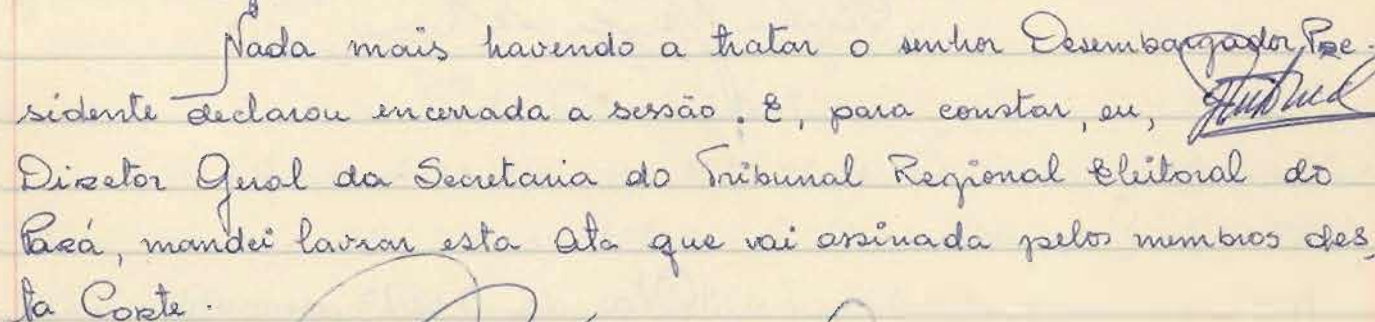 Nada mais havendo a tratar o senhor Desembargador Pre-
sidente declarou encerrada a sessão. E, para constar, eu,
Diretor Geral da Secretaria do Tribunal Regional Eleitoral do
Pará, mandei lavrar esta Ata que vai assinada pelos membros des
ta Corte.